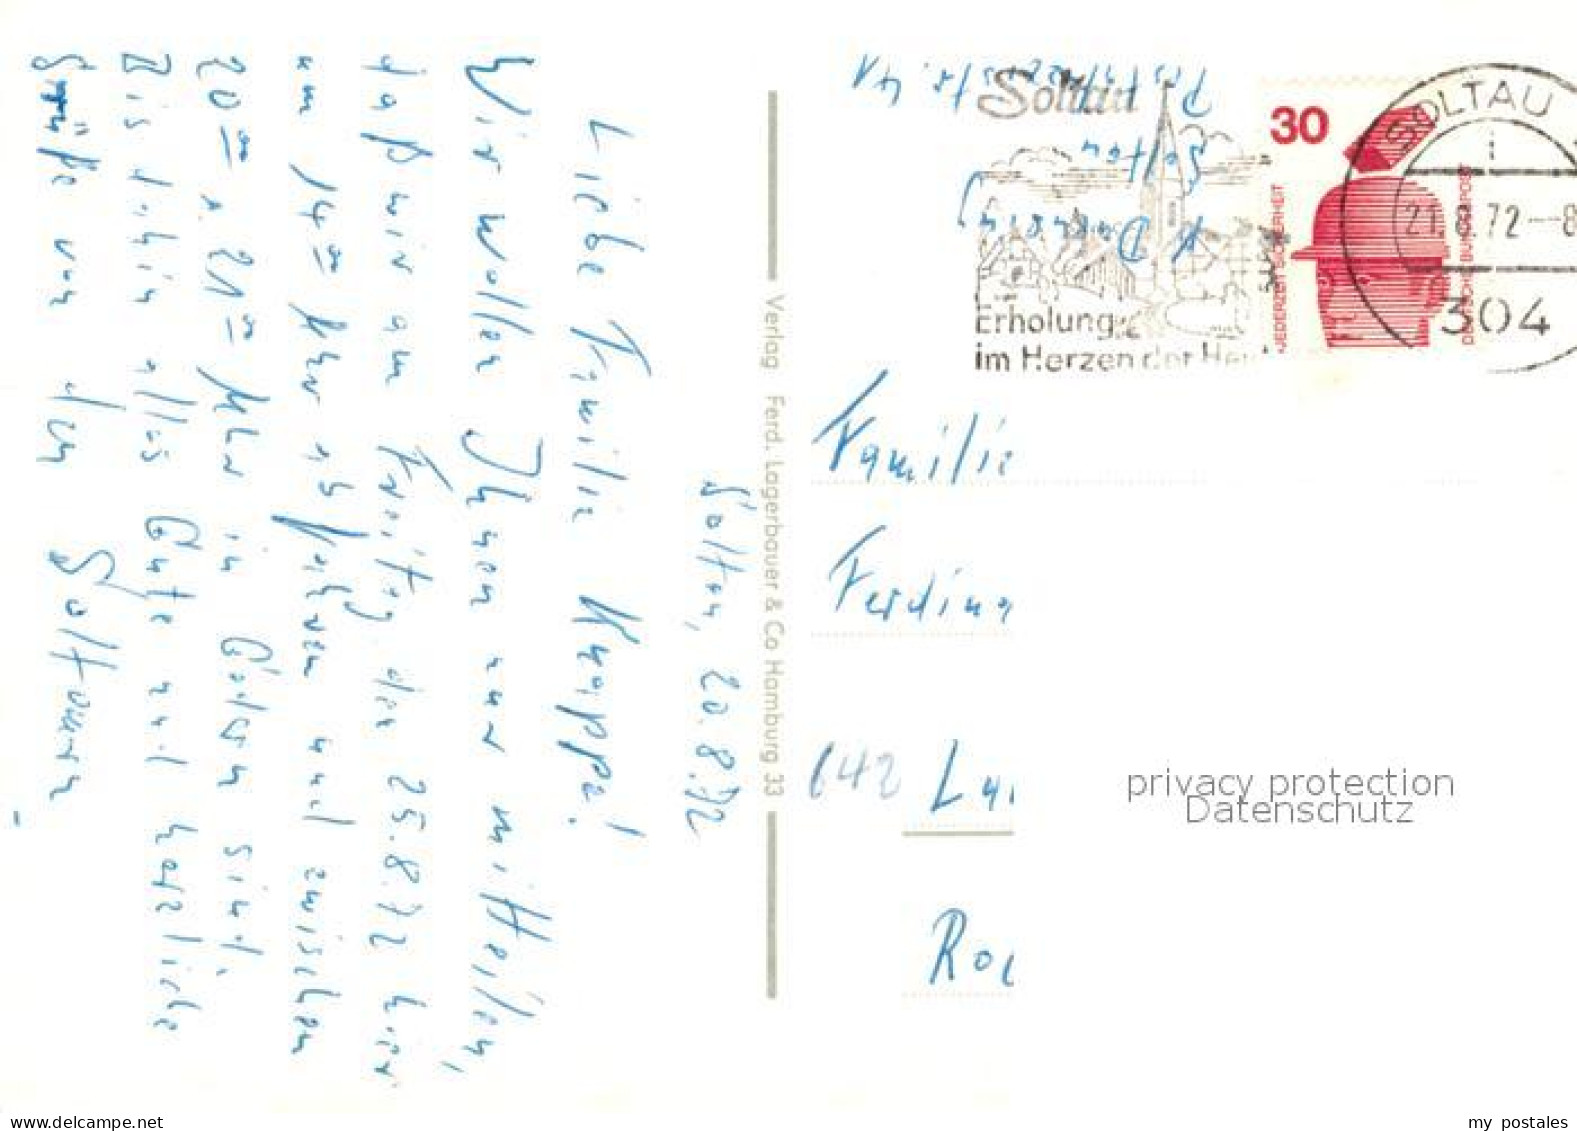 Soltau, 20.8.72
Liebe Familie Knappe!
Wir wollen Ihnen nur mitteilen,
daß wir am Freitag den 25.8.72 hier
um 14ºº Uhr abfahren und zwischen
20ºº u. 21ºº Uhr in sind.
Bis dahin alles Gute und herzliche
Grüße von den
Verlag Ferd. Lagerbauer & Co Hamburg 33
Soltau
Soltau
Erholung
im Herzen der
30
JEDERZEIT SICHERHEIT
DEUTSCHE BUNDESPOST
SOLTAU 1
21.8.72--8
304
Familie
Ferdina
642
privacy protection
Datenschutz
my postales